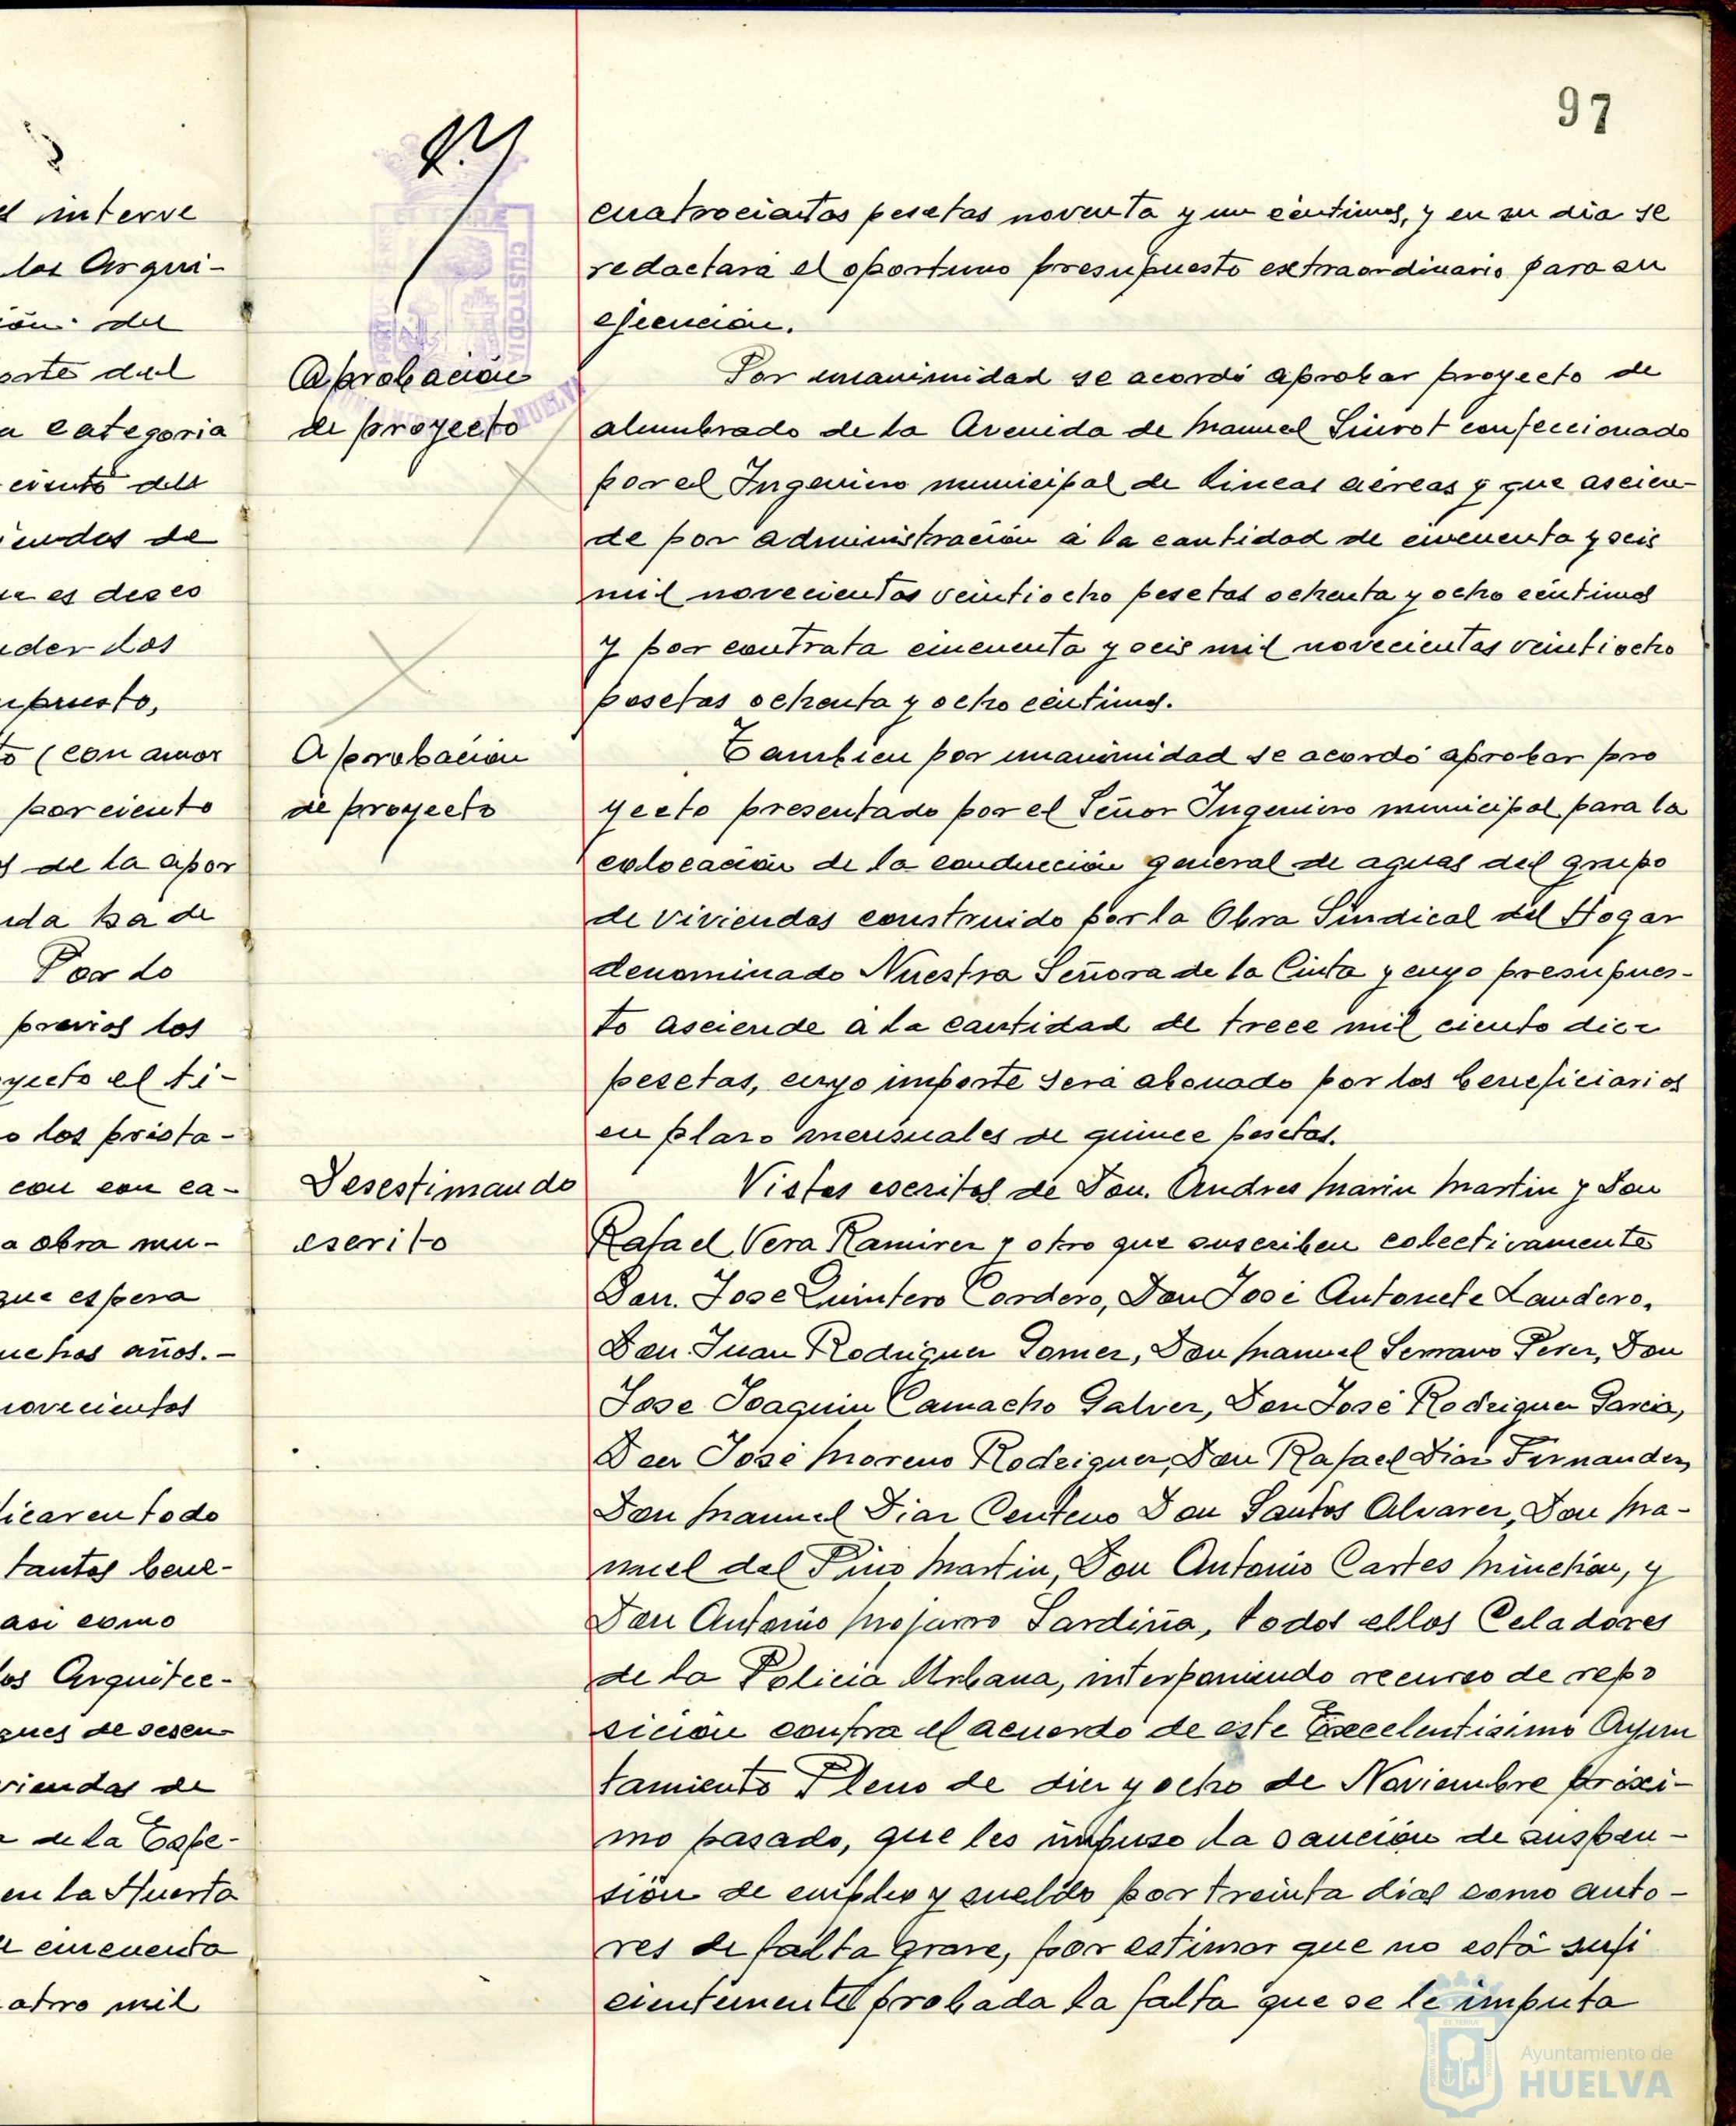 97
s interve
los Arqui-
ión del
orte del
a categoria
ciento del
iendas de
ue es deseo
nder las
upuesto,
to (con amor
por ciento
s de la apor
ida ha de
Por lo
previos los
yecto el ti-
o los prista-
con con ca-
a obra mu-
que espera
uchos años.-
novecientos
licar en todo
tantos bene-
asi como
los Arquitec-
ques de sesen
viendas de
a de la Espe-
en la Huerta
e cincuenta
atro mil
CUSTODIA
HUELVA
Aprobación
de proyecto
Aprobación
de proyecto
Desestimando
escrito
cuatrocientas pesetas noventa y un céntimos, y en su dia se
redactará el oportuno presupuesto extraordinario para su
ejecución.
Por unanimidad se acordó aprobar proyecto de
alumbrado de la Avenida de Manuel Siurot confeccionado
por el Ingeniero municipal de lineas aéreas y que ascien-
de por administración a la cantidad de cincuenta y seis
mil novecientas veintiocho pesetas ochenta y ocho céntimos
y por contrata cincuenta y seis mil novecientas veintiocho
pesetas ochenta y ocho céntimos.
Tambien por unanimidad se acordó aprobar pro
yecto presentado por el Señor Ingeniero municipal para la
colocación de la conducción general de aguas del grupo
de viviendas construido por la Obra Sindical del Hogar
denominado Nuestra Señora de la Cinta y cuyo presupues-
to asciende a la cantidad de trece mil ciento diez
pesetas, cuyo importe será abonado por los beneficiarios
en plazo mensuales de quince pesetas.
Vistos escritos de Don. Andres Marin Martin y Don
Rafael Vera Ramirez y otro que suscriben colectivamente
Don. Jose Quintero Cordero, Don José Antonete Landero,
Don. Juan Rodriguez Gomez, Don Manuel Serrano Perez, Don
Jose Joaquin Camacho Galvez, Don José Rodriguez Garcia,
Don José Moreno Rodriguez, Don Rafael Diaz Fernandez,
Don Manuel Diaz Centeno Don Santos Alvarez, Don Ma-
nuel del Pino Martin, Don Antonio Cartes Minchón, y
Don Antonio Mojarro Sardiña, todos ellos Celadores
de la Policia Urbana, interponiendo recurso de repo
sición contra el acuerdo de este Excelentisimo Ayun
tamiento Pleno de diez y ocho de Noviembre próxi-
mo pasado, que les impuso la sanción de suspen-
sión de empleo y sueldo por treinta dias como auto-
res de falta grave, por estimar que no está sufi
cientemente probada la falta que se le imputa
Ayuntamiento de
HUELVA